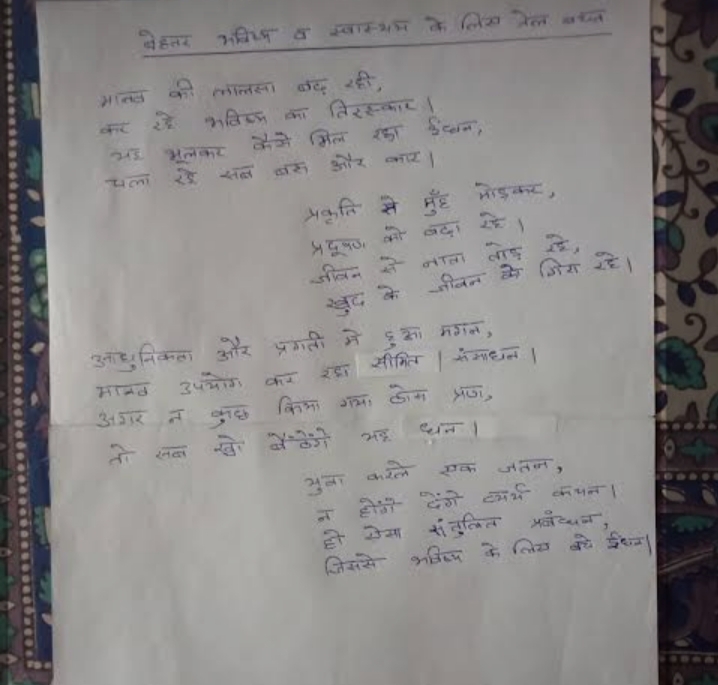 बेहतर भविष्य व स्वास्थय के लिए तेल बचत
मानव की लालसा बढ़ रही,
कर रहे भविष्य का तिरस्कार।
यह भूलकर कैसे मिल रहा ईंधन,
चला रहे सब बस और कार।
प्रकृति से मुँह मोड़कर,
प्रदूषण को बढ़ा रहे।
जीवन से नाता तोड़ रहे,
खुद के जीवन को गिरा रहे।
आधुनिकता और प्रगती मे हुआ मगन,
मानव उपयोग कर रहा सीमित संसाधन।
अगर न कुछ किया गया ठोस प्रण,
तो सब खो बैठेंगे यह धन।
युवा करले एक जतन,
न होंगे देंगे व्यर्थ कथन।
हो ऐसा संतुलित प्रबंधन,
जिससे भविष्य के लिए बचे ईंधन।